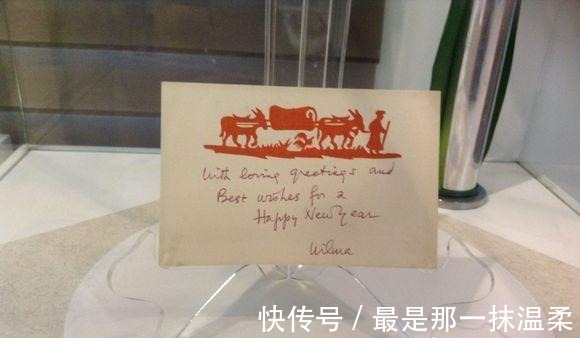 With loving greetings and
Best wishes for a
Happy New Year
Wilma
快传号 / 最是那一抹温柔